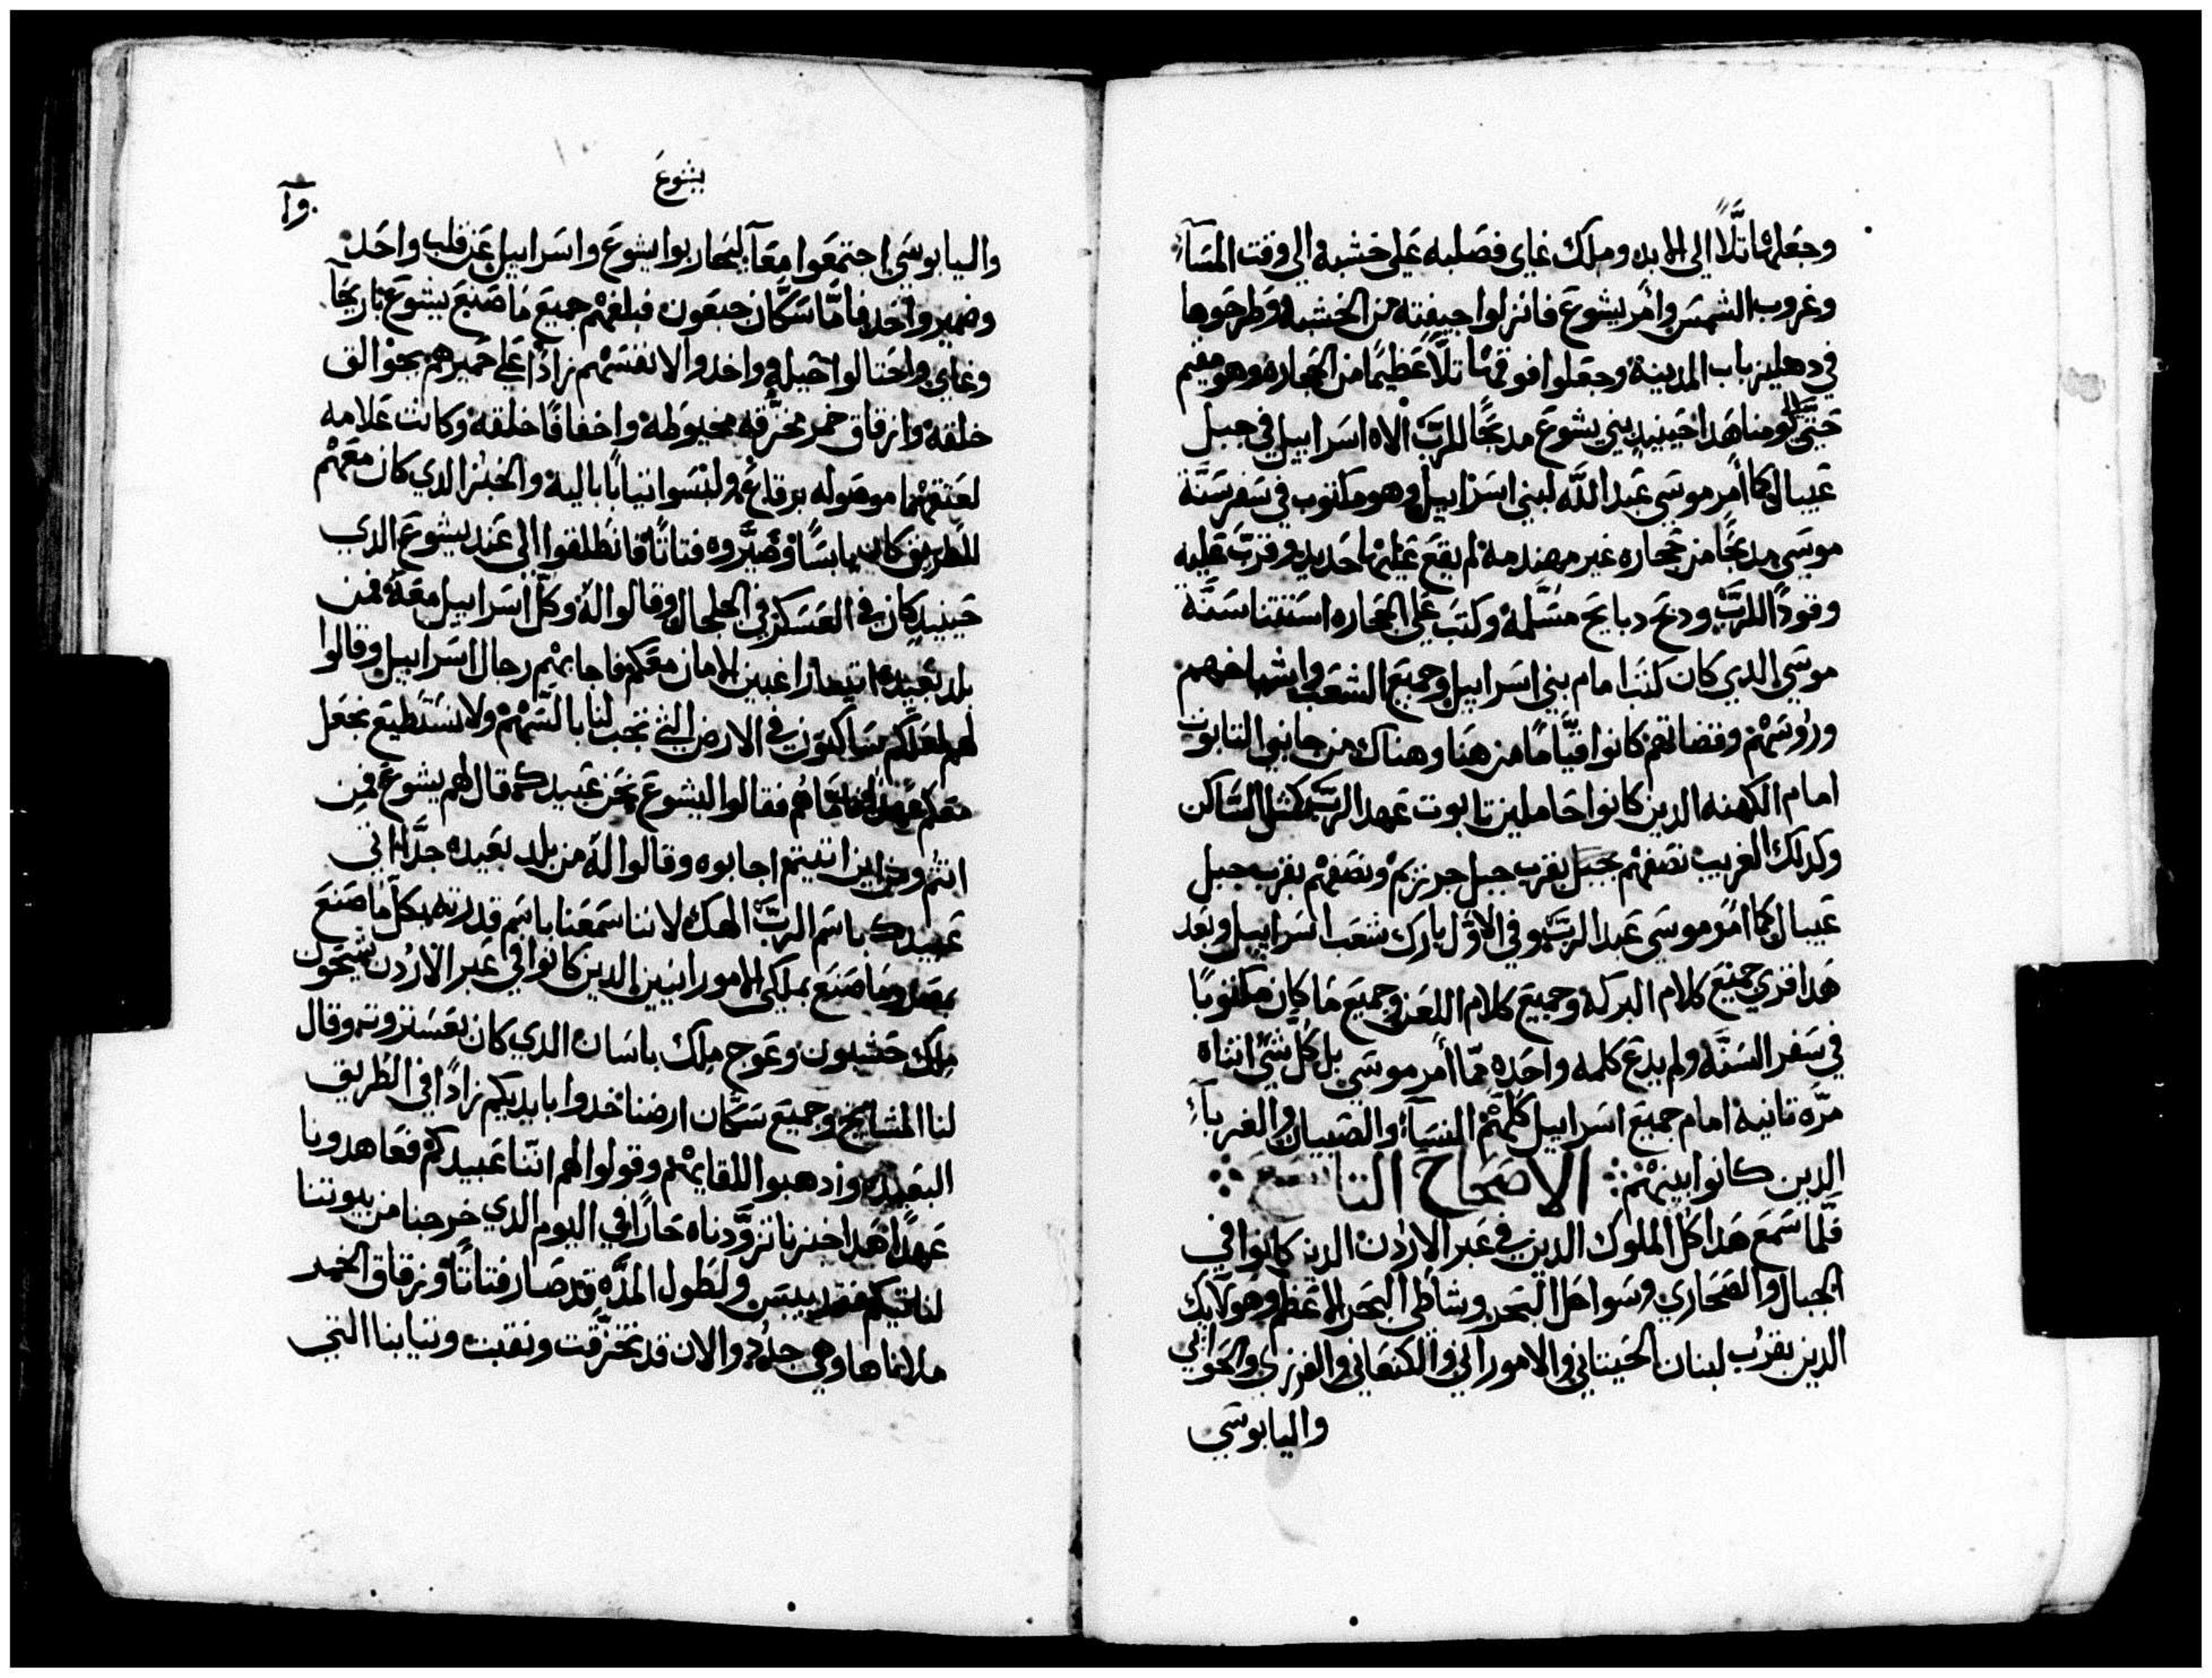 وجعلها تلًّا الي الابد وملك غاي فصلبه علي خشبه الي وقت المسآء
وغروب الشمس وامر يشوع فانزلوا جيفته من الخشبه وطرحوها
في دهليز باب المدينة وجعلوا فوقها تلًّا عظيمًا من الحجاره وهو مقيم
حتي الي يومنا هدا حينيدٍ بني يشوع مدبحًا للربّ الاه اسراييل في جبل
عيبال كما امر موسي عبد الله لبني اسراييل وهو مكتوب في سفر سنّة
موسي مدبحًا من حجاره غير مهندمة لم يقع عليها حديد وقرّب عليه
وقودًا للربّ ودبح دبايح مسلّمة وكتب علي الحجاره استتنا سنّة
موسي الدي كان كتب امام بني اسراييل وجميع الشعب واشياخهم
وروسهم وقضاتهم كانوا قيّامًا من هنا وهناك من جانبي التابوت
امام الكهنه الدين كانوا حاملين تابوت عهد الربّ كمثل الساكن
وكدلك الغريب نصفهم بجبل بقرب جبل جرزيم ونصفهم بقرب جبل
عيبال كما امر موسي عبد الربّ وفي الاوّل بارك شعب اسراييل وبعد
هدا قري جميع كلام البركه وجميع كلام اللعن وجميع ما كان مكتوبًا
في سفر السنّه ولم يدع كلمه واحده ممّا امر موسي بل كل شي اتناه
مرّه تانيه امام جميع اسراييل كلّهم النسآء والصبيان والغربآء
الدين كانوا بينهم الاصحاح التاسع
فلّما سمع هدا كل الملوك الدين في عبر الاردن الدين كانوا في
الجبال والصحاري وسواحل البحر وشاطي البحر الاعظم وهولايك
الدين بقرب لبنان الحيتاني والاموراني والكنعاني والفرزي والحواني
واليابوسي
يشوع
واليابوسي اجتمعوا معًا ليحاربوا يشوع واسراييل عن قلب واحد
وضمير واحد فامّا سكّان جبعون فبلغهم جميع ما صنع يشوع باريحا
وغاي واحتالوا حيله واخدوا لانفسهم زادًا علي حميرهم بجوالق
خلقه وازقاق خمر مخرّقه مخيوطه واخفافًا خلقه وكانت علامه
لعتقها موصوله برقاع ولبسوا تيابًا باليه والخبز الدي كان معهم
للطريق كان يابسًا وصيّروه فتاتًا فانطلقوا الي عند يشوع الدي
حينيدٍ كان في العسكر في الجلجال وقالوا له وكلّ اسراييل معه من
بلد بعيده اتينا راغبين الامان معكم فاجابهم رجال اسراييل وقالوا
لهم لعلكم ساكنون في الارض التي تجب لنا بالسهم ولا نستطيع نجعل
معكم فقالوا ليشوع نحن عبيدك قال لهم يشوع فمن
انتم ومن اين اتيتم اجابوه وقالوا له من بلد بعيده جدًّا اتي
عبيدك باسم الربّ الهك لاننا سمعنا باسم قدرته بكل ما صنع
بمصر وما صنع بملكي الاموراتيين الدين كانوا في عبر الاردن سيحون
ملك حشبون وعوج ملك باسان الدي كان بعستروته وقال
لنا المشايخ وجميع سكّان ارضنا خدوا بايديكم زادًا في الطريق
البعيده وادهبوا للقايهم وقولوا لهم انّنا عبيدكم فعاهدونا
عهدًا هدا خبزنا تزوّدناه حارًا في اليوم الدي خرجنا من بيوتنا
لناتيكم فقد يبس ولطول المدّه قد صار فتاتًا وزقاق الخمر
ملاناها وهي جدد والان قد تخرّقت ونقبت وتيابنا التي